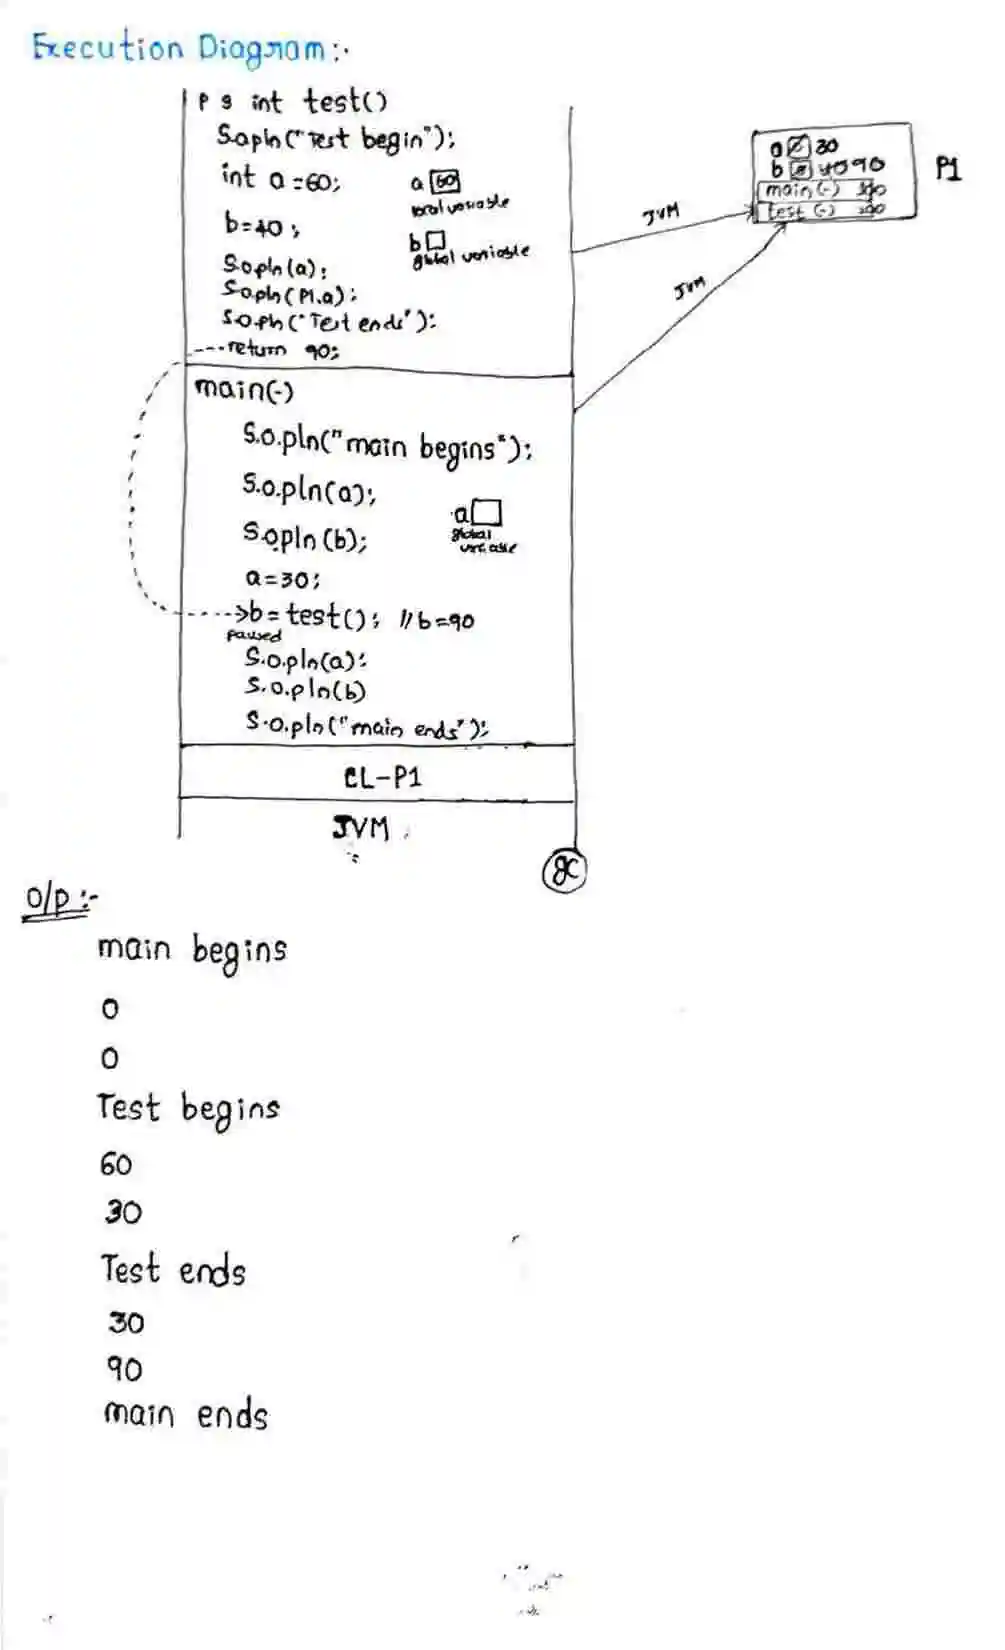 Execution Diagram :-
p s int test()
S.o.pln("Test begin");
int a = 60;
a 60
local variable
b = 40;
b
global variable
S.o.pln(a);
S.o.pln(P1.a);
S.o.pln("Test ends");
return 90;
main(-)
S.o.pln("main begins");
S.o.pln(a);
a
global
variable
S.o.pln(b);
a = 30;
b = test(); //b=90
paused
S.o.pln(a);
S.o.pln(b)
S.o.pln("main ends");
CL-P1
JVM
gc
JVM
JVM
a 30
b 40 90
main(-)
test(-)
P1
O/p :-
main begins
0
0
Test begins
60
30
Test ends
30
90
main ends